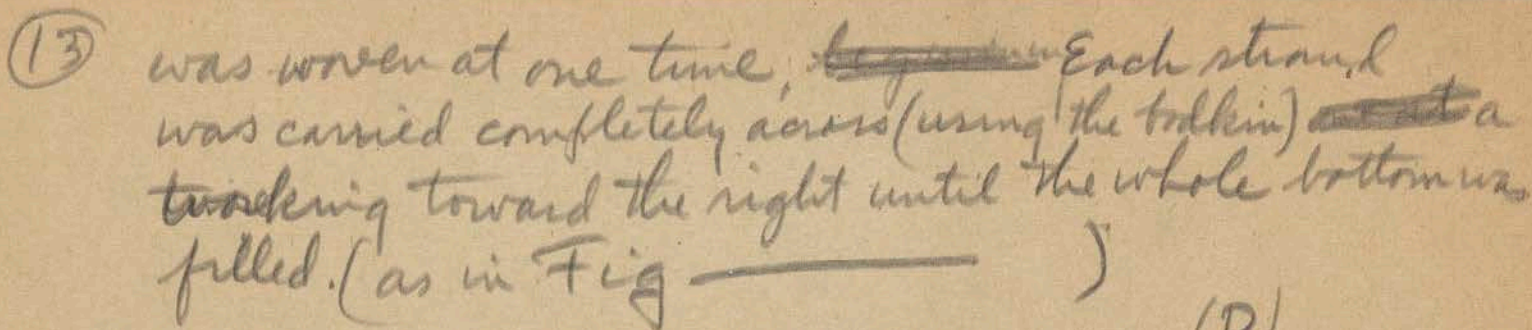 (13) was woven at one time, Each strand
was carried completely across (using the bodkin) a
working toward the right until the whole bottom was
filled. (as in Fig ——— )
(D)